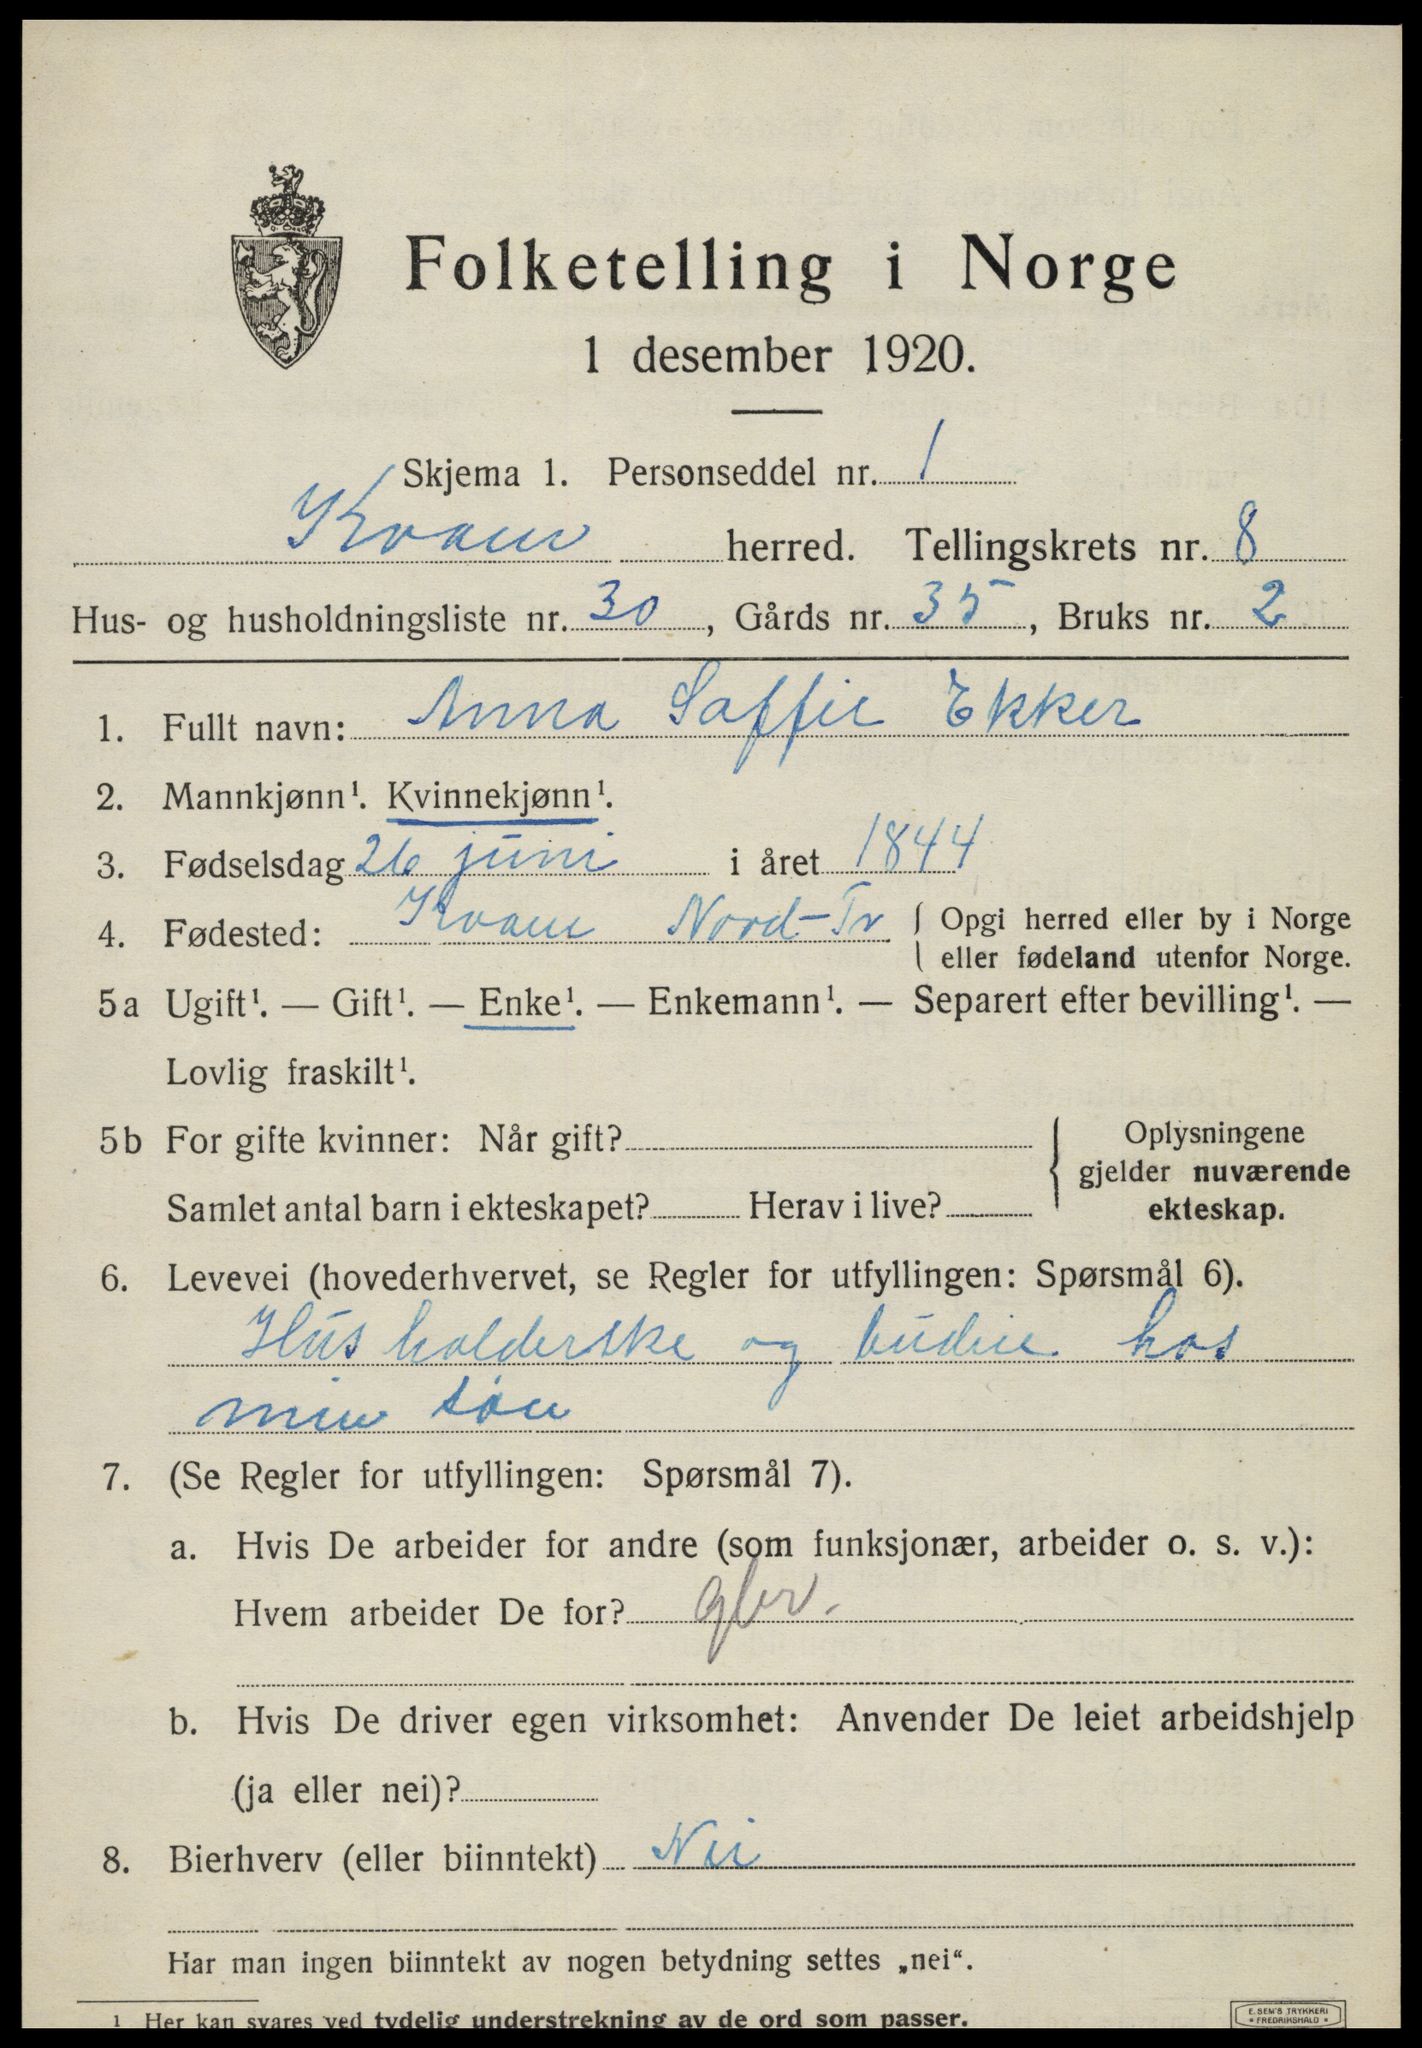 Folketelling i Norge
1 desember 1920.
Skjema 1. Personseddel nr. 1
Kvam herred. Tellingskrets nr. 8
Hus- og husholdningsliste nr. 30, Gårds nr. 35, Bruks nr. 2
1. Fullt navn: Anna Saffie Ekker
2. Mannkjønn¹. Kvinnekjønn¹.
3. Fødselsdag 26 juni i året 1844
4. Fødested: Kvam Nord-Tr { Opgi herred eller by i Norge
eller fødeland utenfor Norge.
5a Ugift¹. — Gift¹. — Enke¹. — Enkemann¹. — Separert efter bevilling¹. —
Lovlig fraskilt¹.
5b For gifte kvinner: Når gift? { Oplysningene
gjelder nuværende
Samlet antal barn i ekteskapet? Herav i live? ekteskap.
6. Levevei (hovederhvervet, se Regler for utfyllingen: Spørsmål 6).
Husholderske og budeie hos
min søn
7. (Se Regler for utfyllingen: Spørsmål 7).
a. Hvis De arbeider for andre (som funksjonær, arbeider o. s. v.):
Hvem arbeider De for? gbr.
b. Hvis De driver egen virksomhet: Anvender De leiet arbeidshjelp
(ja eller nei)?
8. Bierhverv (eller biinntekt) Nei
Har man ingen biinntekt av nogen betydning settes „nei“.
¹ Her kan svares ved tydelig understrekning av de ord som passer.
E. SEM'S TRYKKERI
• FREDRIKSHALD •